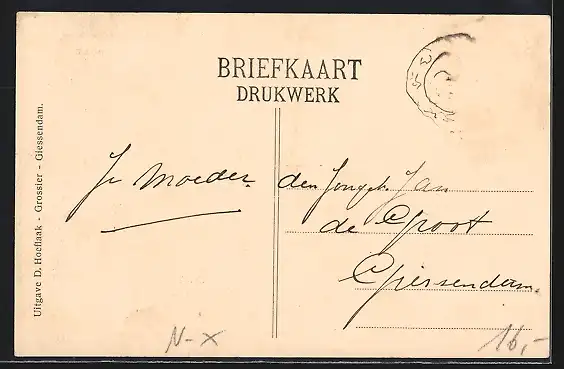 BRIEFKAART
DRUKWERK
Uitgave D. Hoeflaak - Grossier - Giessendam.
Je Moeder.
den Jongeh. Jan
de Groot
Giessendam.
N-X
16,-